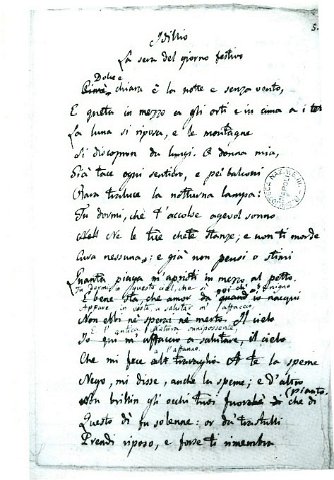 5.
Idillio
La sera del giorno festivo
Dolce e
chiara è la notte e senza vento,
E queta in mezzo a gli orti e in cima a i tet
La luna si riposa, e le montagne
Si discopron da lungi. O donna mia,
Già tace ogni sentiero, e pei balconi
Rara traluce la notturna lampa:
Tu dormi, chè t'accolse agevol sonno
Ne le tue chete stanze; e non ti morde
Cura nessuna; e già non pensi o stimi
Quanta piaga m'apristi in mezzo al petto.
Tu dormi: io questo ciel, che sì benigno
E bene sta, che amor da quand'io nacqui
Appare in vista, a salutar m'affaccio
Non ebbi nè sperai nè merto. Il cielo
E l'antica natura onnipossente
Io qui m'affaccio a salutare, il cielo
a l'affanno
Che mi fece al travaglio. A te la speme
Nego, mi disse, anche la speme; e d'altro
brillin gli occhi tuoi che di pianto.
Questo dì fu solenne: or da' trastulli
Prendi riposo, e forse ti rimembra